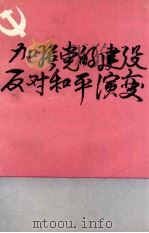 加强党的建设
反对和平演变
www.gotoread.com